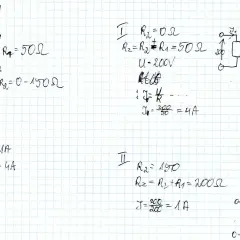 R₁ = 50Ω
R₂ = 0 - 150Ω
1A
4A
I
R₂ = 0Ω
R₁ = 50Ω
U = 200V
= 4A
II
R₂ = 150
Rz = R₂ + R₁ = 200Ω
I = 200/200 = 1A